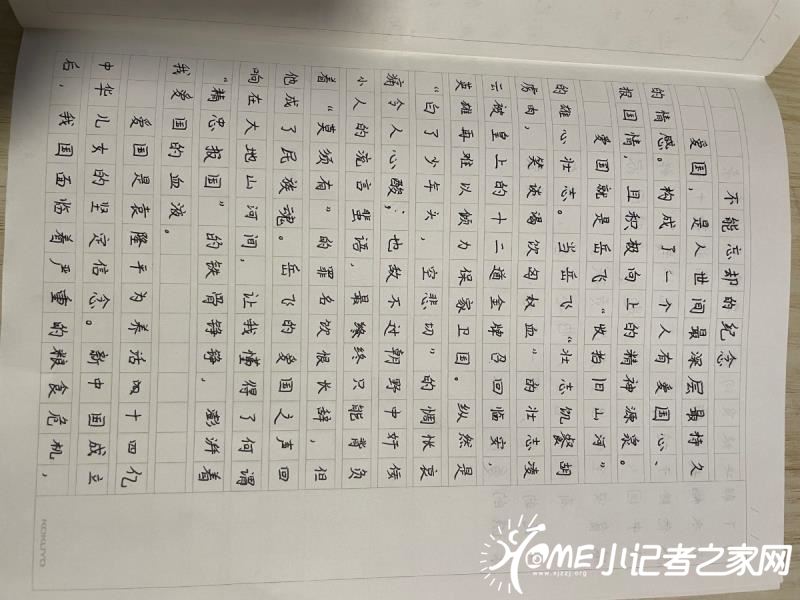 不能忘却的纪念
爱国，是人世间最深层最持久
的情感。构成了一个人有爱国心、
报国情，且积极向上的精神源泉。
爱国就是岳飞“收拾旧山河”
的雄心壮志。当岳飞“壮志饥餐胡
虏肉，笑谈渴饮匈奴血”的壮志凌
云被皇上的十二道金牌召回临安，
英雄再难以倾力保家卫国。纵然是
“白了少年头，空悲切”的惆怅哀
痛令人心酸；也敌不过朝野中奸佞
小人的流言蜚语，最终只能背负
着“莫须有”的罪名饮恨长辞，但
他成了民族魂。岳飞的爱国之声回
响在大地山河间，让我懂得了何谓
“精忠报国”的铁骨铮铮，澎湃着
我爱国的血液。
爱国是袁隆平为养活四十四亿
中华儿女的坚定信念。新中国成立
后，我国面临着严重的粮食危机，
KOKUYO
HOME小记者之家网
www.xjzzj.org